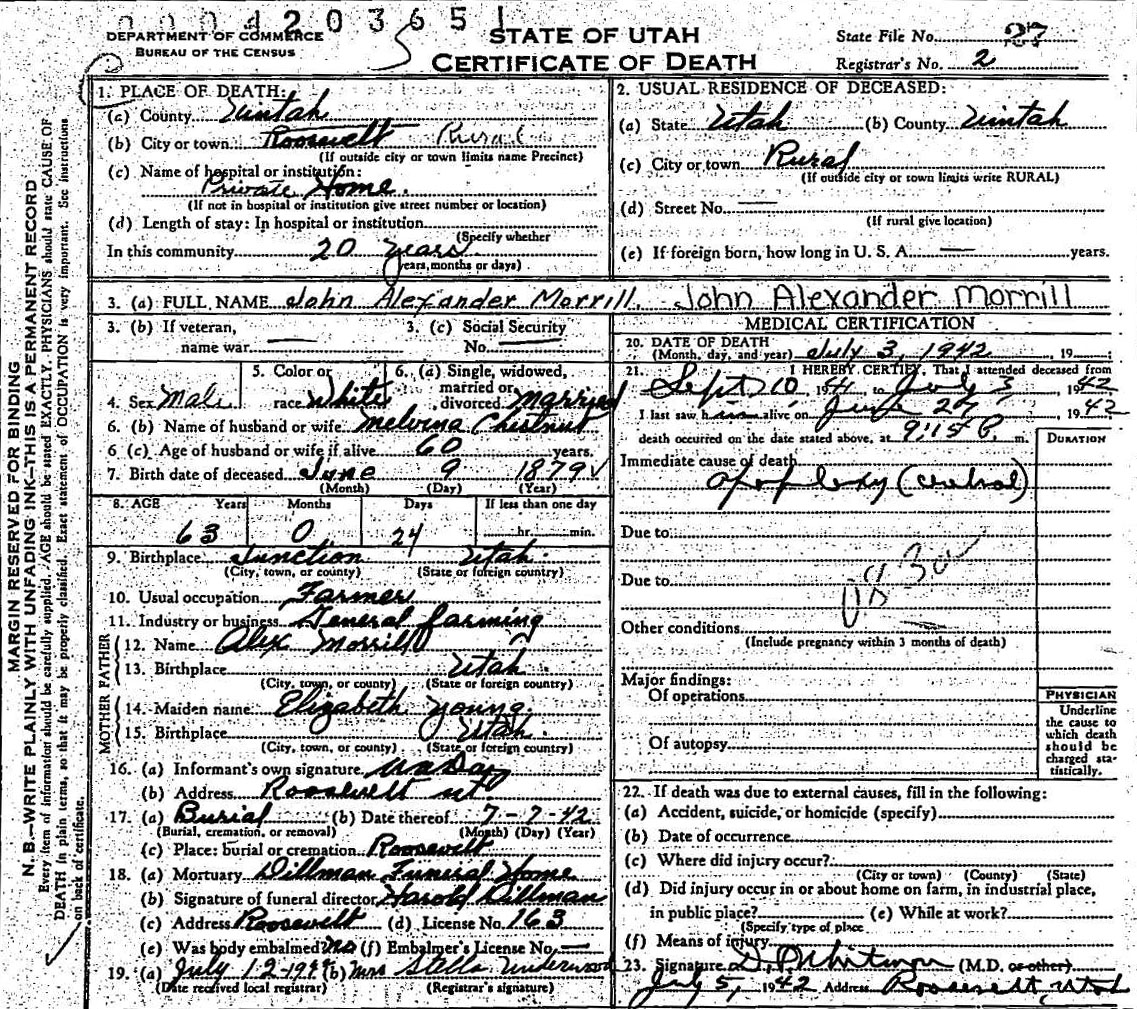 000420365 1
DEPARTMENT OF COMMERCE
BUREAU OF THE CENSUS
STATE OF UTAH
CERTIFICATE OF DEATH
State File No. 27
Registrar's No. 2
MARGIN RESERVED FOR BINDING
N. B.—WRITE PLAINLY WITH UNFADING INK—THIS IS A PERMANENT RECORD
Every item of information should be carefully supplied. AGE should be stated EXACTLY. PHYSICIANS should state CAUSE OF
DEATH in plain terms, so that it may be properly classified. Exact statement of OCCUPATION is very important. See instructions
on back of certificate.
1. PLACE OF DEATH:
(a) County Uintah
(b) City or town Roosevelt Rural
(If outside city or town limits name Precinct)
(c) Name of hospital or institution:
Private Home.
(If not in hospital or institution give street number or location)
(d) Length of stay: In hospital or institution
(Specify whether
In this community 20 years
years, months or days)
2. USUAL RESIDENCE OF DECEASED:
(a) State Utah (b) County Uintah
(c) City or town Rural
(If outside city or town limits write RURAL)
(d) Street No. —
(If rural give location)
(e) If foreign born, how long in U. S. A. — years.
3. (a) FULL NAME John Alexander Morrill. John Alexander Morrill
3. (b) If veteran,
name war —
3. (c) Social Security
No. —
4. Sex Male
5. Color or
race White
6. (a) Single, widowed,
married or
divorced married
6. (b) Name of husband or wife Melvina Chestnut
6 (c) Age of husband or wife if alive 60 years.
7. Birth date of deceased June 9 1879
(Month) (Day) (Year)
8. AGE Years Months Days If less than one day
63 0 24 hr. min.
9. Birthplace Junction Utah.
(City, town, or county) (State or foreign country)
10. Usual occupation Farmer
11. Industry or business General farming
FATHER
12. Name Alex Morrill
13. Birthplace Utah
(City, town, or county) (State or foreign country)
MOTHER
14. Maiden name Elizabeth Young.
15. Birthplace Utah.
(City, town, or county) (State or foreign country)
16. (a) Informant's own signature
(b) Address Roosevelt ut
17. (a) Burial (b) Date thereof 7-7-42
(Burial, cremation, or removal) (Month) (Day) (Year)
(c) Place: burial or cremation Roosevelt
18. (a) Mortuary Dillman Funeral Home
(b) Signature of funeral director Harold Dillman
(c) Address Roosevelt (d) License No. 163
(e) Was body embalmed no (f) Embalmer's License No. —
19. (a) July 12-1942 (b) Mrs Stella Underwood
(Date received local registrar) (Registrar's signature)
MEDICAL CERTIFICATION
20. DATE OF DEATH
(Month, day, and year) July 3, 1942, 19
21. I HEREBY CERTIFY, That I attended deceased from
Sept 10, 1941 to July 3, 1942
I last saw him alive on June 27, 1942
death occurred on the date stated above, at 9:15 P. m.
DURATION
Immediate cause of death
apoplexy (central)
Due to
Due to
830
Other conditions
(Include pregnancy within 3 months of death)
Major findings:
Of operations
Of autopsy
PHYSICIAN
Underline
the cause to
which death
should be
charged sta-
tistically.
22. If death was due to external causes, fill in the following:
(a) Accident, suicide, or homicide (specify)
(b) Date of occurrence
(c) Where did injury occur?
(City or town) (County) (State)
(d) Did injury occur in or about home on farm, in industrial place,
in public place? (e) While at work?
(Specify type of place
(f) Means of injury
23. Signature Whitmore (M.D. or other)
July 5, 1942 Address Roosevelt, Utah